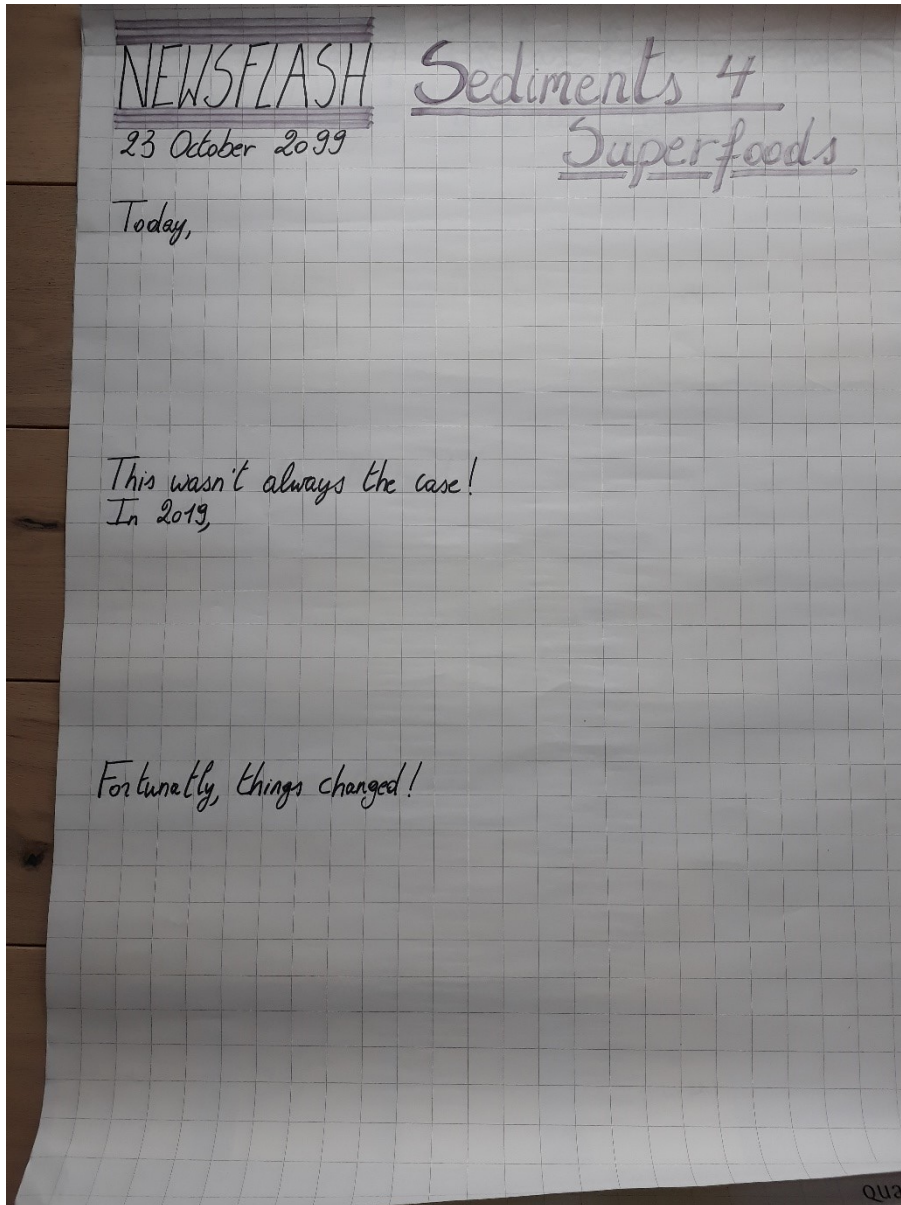 NEWSFLASH
Sediments 4
Superfoods
23 October 2099
Today,
This wasn't always the case!
In 2019,
Fortunatly, things changed!